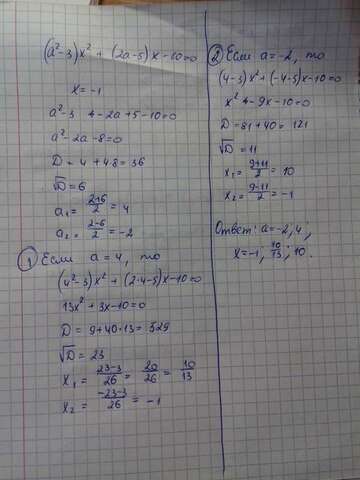 (a²-3)x² + (2a-5)x-10=0
x=-1
a²-3 4-2a+5-10=0
a²-2a-8=0
D = 4 + 48 = 36
√D=6
a₁ = (2+6)/2 = 4
a₂ = (2-6)/2 = -2
① Если a=4, то
(4²-3)x² + (2·4-5)x-10=0
13x² + 3x-10=0
D = 9+40·13 = 529
√D = 23
x₁ = (23-3)/26 = 20/26 = 10/13
x₂ = (-23-3)/26 = -1
② Если a=-2, то
(4-3)x²+(-4-5)x-10=0
x² 4-9x-10=0
D=81+40= 121
√D=11
x₁ = (9+11)/2 = 10
x₂ = (9-11)/2 = -1
Ответ: a=-2; 4;
x=-1; 10/13; 10.